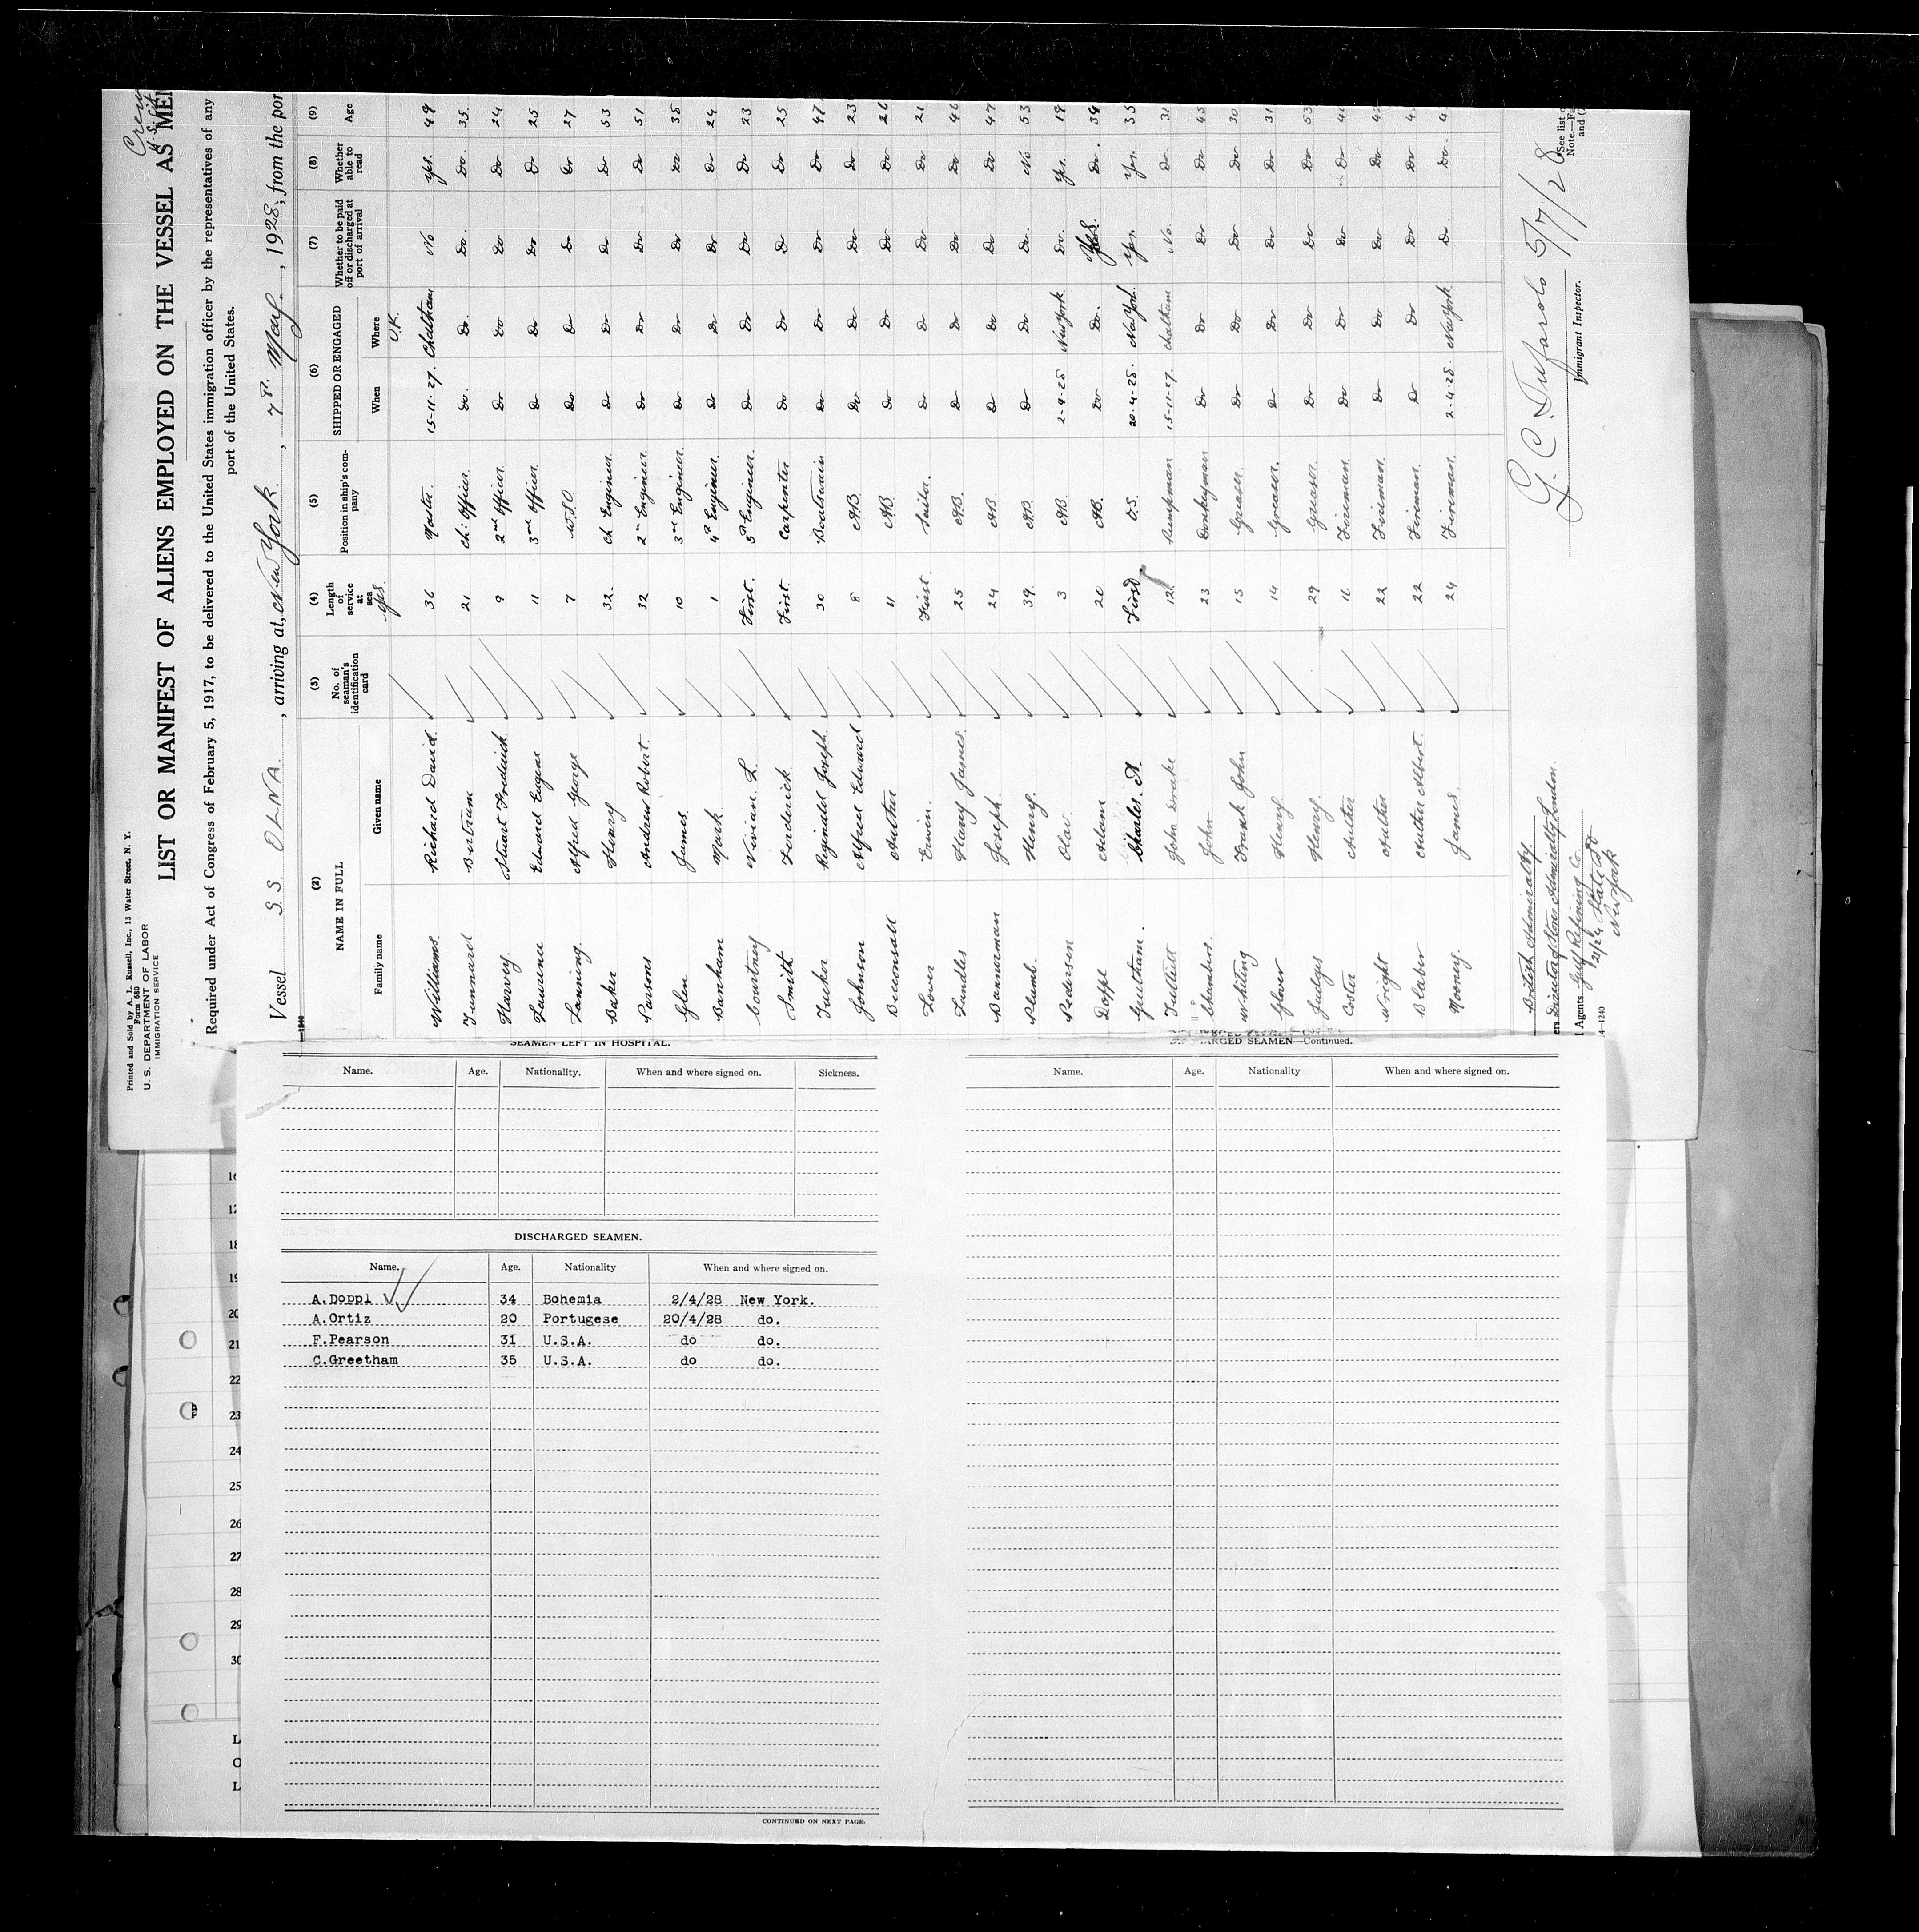 Printed and Sold by A. L. Russell, Inc., 13 Water Street, N. Y.
Form 680
U. S. DEPARTMENT OF LABOR
IMMIGRATION SERVICE
Crew
LIST OR MANIFEST OF ALIENS EMPLOYED ON THE VESSEL AS MEM
Required under Act of Congress of February 5, 1917, to be delivered to the United States immigration officer by the representatives of any
port of the United States.
Vessel S.S. OLNA, arriving at, New York, 7th May, 1928, from the por
(2) (3) (4) (5) (6) (7) (8) (9)
NAME IN FULL No. of seaman's identification card Length of service at sea Position in ship's company SHIPPED OR ENGAGED Whether to be paid off or discharged at port of arrival Whether able to read Age
Family name Given name When Where
yrs. U.K.
Williams Richard David 36 Master 15-11-27 Chatham No Yes. 49
Tennnard Bertram 21 Ch. Officer Do. Do. Do. Do. 35
Harvey Stuart Frederick 9 2nd Officer Do Do Do Do 24
Laurence Edward Eugene 11 3rd Officer Do Do Do Do 25
Lanning Alfred George 7 W.T.O. Do Do Do Do 27
Baker Henry 32 Ch Engineer Do Do Do Do 53
Parsons Andrew Robert 32 2nd Engineer Do Do Do Do 51
Glen James 10 3rd Engineer Do Do Do Do 35
Banham Mark 1 4th Engineer Do Do Do Do 24
Courtney Vivian L. First. 5th Engineer Do Do Do Do 23
Smith Frederick First. Carpenter Do Do Do Do 25
Tucker Reginald Joseph 30 Boatswain Do Do Do Do 47
Johnson Alfred Edward 8 AB Do Do Do Do 23
Becconsall Arthur 11 AB Do Do Do Do 26
Lover Erwin First. Sailor. Do Do Do Do 21
Landles Harry James 25 AB. Do Do Do Do 46
Bannerman Joseph 24 AB Do Do Do Do 47
Plumb. Henry. 39 AB. Do Do Do. No 53
Pedersen Olav 3 AB 2-4-28 New York Do. Yes. 19
Doppl Adam 20 AB. Do Do. Yes. Do. 34
Greetham. Charles A. First O.S. 20-4-28. New York. Yes. Yes. 35
Tuttiett John Drake 12 Pumpman 15-11-27. Chatham No. Do. 31
Chambers. John 23 Donkeyman Do Do Do Do 45
Whiting Frank John 15 Greaser. Do Do Do Do 30
Glover Henry 14 Greaser. Do Do Do Do 31
Judges Henry. 29 Greaser. Do Do Do Do 53
Coster Arthur 16 Fireman. Do Do Do Do
Wright Arthur 22 Fireman. Do Do Do Do
Blaber Arthur Albert 22 Fireman Do Do Do Do
Mooney. James 24 Fireman. 2-4-28. New York. Do. Do.
British Admiralty.
ers Director of Stores Admiralty London.
l Agents Gulf Refining Co.
State St
New York
14—1240
5/7/28
Immigrant Inspector.
See list o
Note.—Fa
and (
SEAMEN LEFT IN HOSPITAL.
Name. Age. Nationality. When and where signed on. Sickness.
DISCHARGED SEAMEN.
Name. Age. Nationality When and where signed on.
A.Doppl 34 Bohemia 2/4/28 New York.
A.Ortiz 20 Portugese 20/4/28 do.
F.Pearson 31 U.S.A. do do.
C.Greetham 35 U.S.A. do do.
CONTINUED ON NEXT PAGE.
ARGED SEAMEN—Continued.
Name. Age. Nationality When and where signed on.
16
17
18
19
20
21
22
23
24
25
26
27
28
29
30
L
O
L